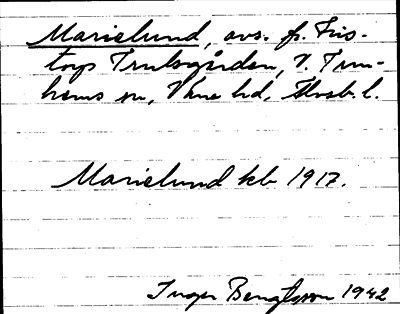 Marielund, avs. fr. Fris-
torp Trulsgården, V. Tun-
hems sn, Väne hd, Älvsb. l.
Marielund kb 1917.
Inger Bengtsson 1942